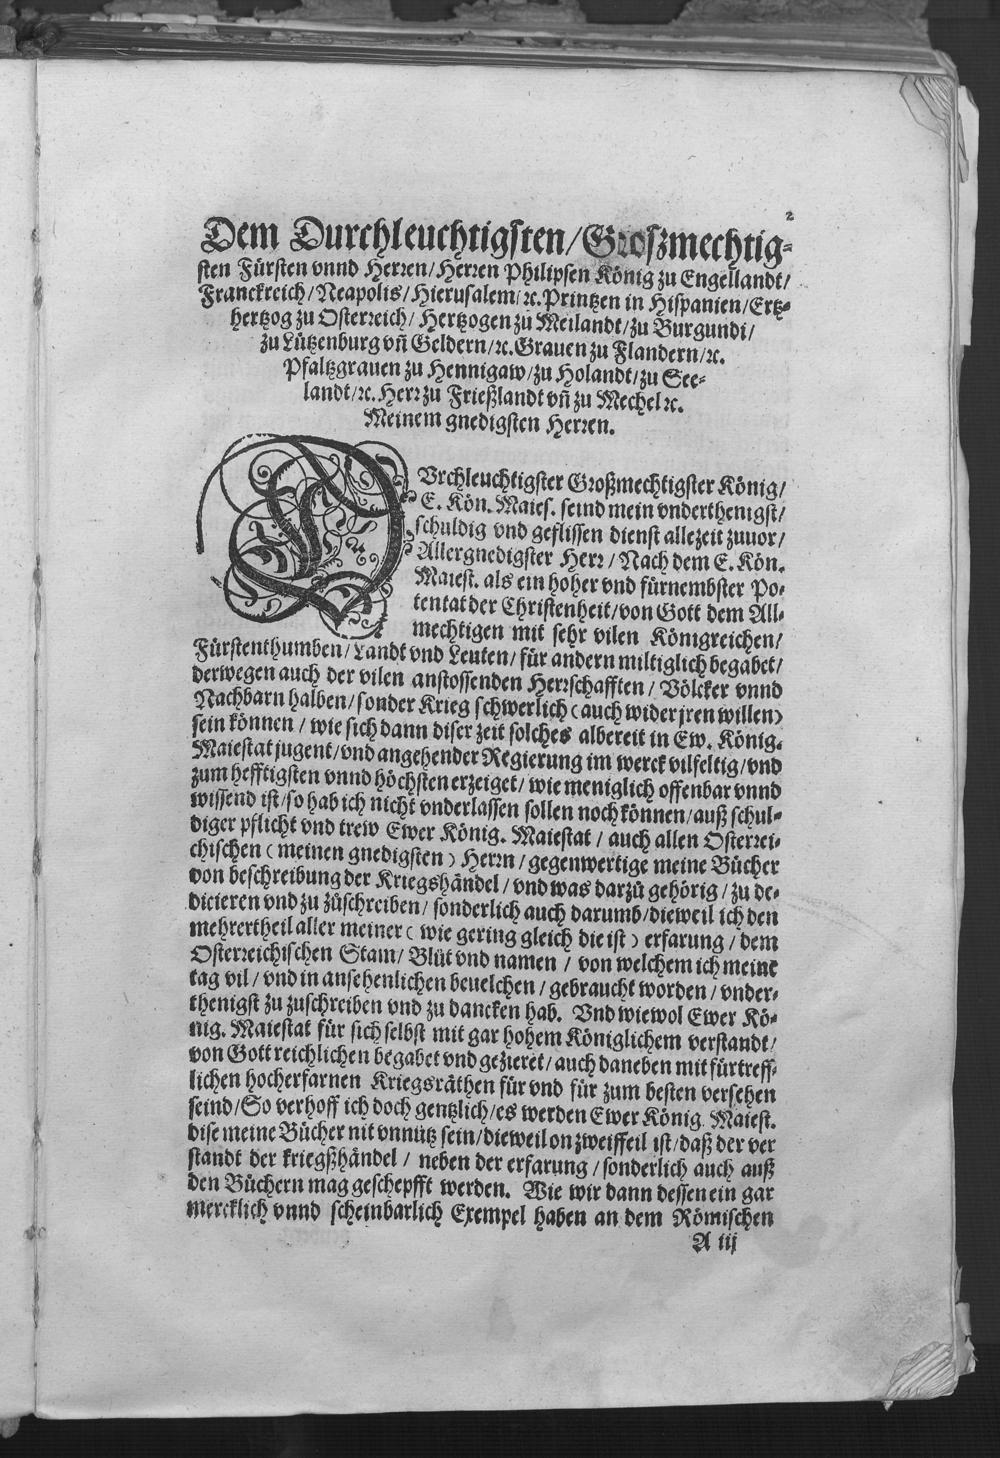 2
Dem Durchleuchtigsten/Großmechtig-
sten Fürsten vnnd Herren/Herren Philipsen König zu Engellandt/
Franckreich/Neapolis/Hierusalem/ꝛc. Printzen in Hispanien/Ertz-
hertzog zu Osterreich/ Hertzogen zu Meilandt/zu Burgundi/
zu Lützenburg vñ Geldern/ꝛc. Grauen zu Flandern/ꝛc.
Pfaltzgrauen zu Hennigaw/zu Holandt/zu See-
landt/ꝛc. Herr zu Frießlandt vñ zu Mechel ꝛc.
Meinem gnedigsten Herren.
DVrchleuchtigster Großmechtigster König/
E. Kön. Maies. seind mein vnderthenigst/
schuldig vnd geflissen dienst allezeit zuuor/
Allergnedigster Herr/ Nach dem E. Kön.
Maiest. als ein hoher vnd fürnembster Po-
tentat der Christenheit/von Gott dem All-
mechtigen mit sehr vilen Königreichen/
Fürstenthumben/Landt vnd Leuten/ für andern miltiglich begabet/
derwegen auch der vilen anstossenden Herrschafften/ Völcker vnnd
Nachbarn halben/sonder Krieg schwerlich (auch wider jren willen)
sein können/ wie sich dann diser zeit solches albereit in Ew. König.
Maiestat jugent/vnd angehender Regierung im werck vilfeltig/vnd
zum hefftigsten vnnd höchsten erzeiget/ wie meniglich offenbar vnnd
wissend ist/so hab ich nicht vnderlassen sollen noch können/auß schul-
diger pflicht vnd trew Ewer König. Maiestat/ auch allen Osterrei-
chischen (meinen gnedigsten) Herrn/ gegenwertige meine Bücher
von beschreibung der Kriegshändel/ vnd was darzů gehörig/ zu de-
dicieren vnd zu zůschreiben/ sonderlich auch darumb/dieweil ich den
mehrertheil aller meiner (wie gering gleich die ist) erfarung/ dem
Osterreichischen Stam/ Blůt vnd namen/ von welchem ich meine
tag vil/ vnd in ansehenlichen beuelchen/ gebraucht worden/ vnder-
thenigst zu zuschreiben vnd zu dancken hab. Vnd wiewol Ewer Kö-
nig. Maiestat für sich selbst mit gar hohem Königlichem verstandt/
von Gott reichlichen begabet vnd gezieret/ auch daneben mit fürtreff-
lichen hocherfarnen Kriegsräthen für vnd für zum besten versehen
seind/So verhoff ich doch gentzlich/es werden Ewer König. Maiest.
dise meine Bücher nit vnnütz sein/dieweil on zweiffel ist/daß der ver
standt der kriegßhändel/ neben der erfarung/sonderlich auch auß
den Büchern mag geschepfft werden. Wie wir dann dessen ein gar
mercklich vnnd scheinbarlich Exempel haben an dem Römischen
A iij